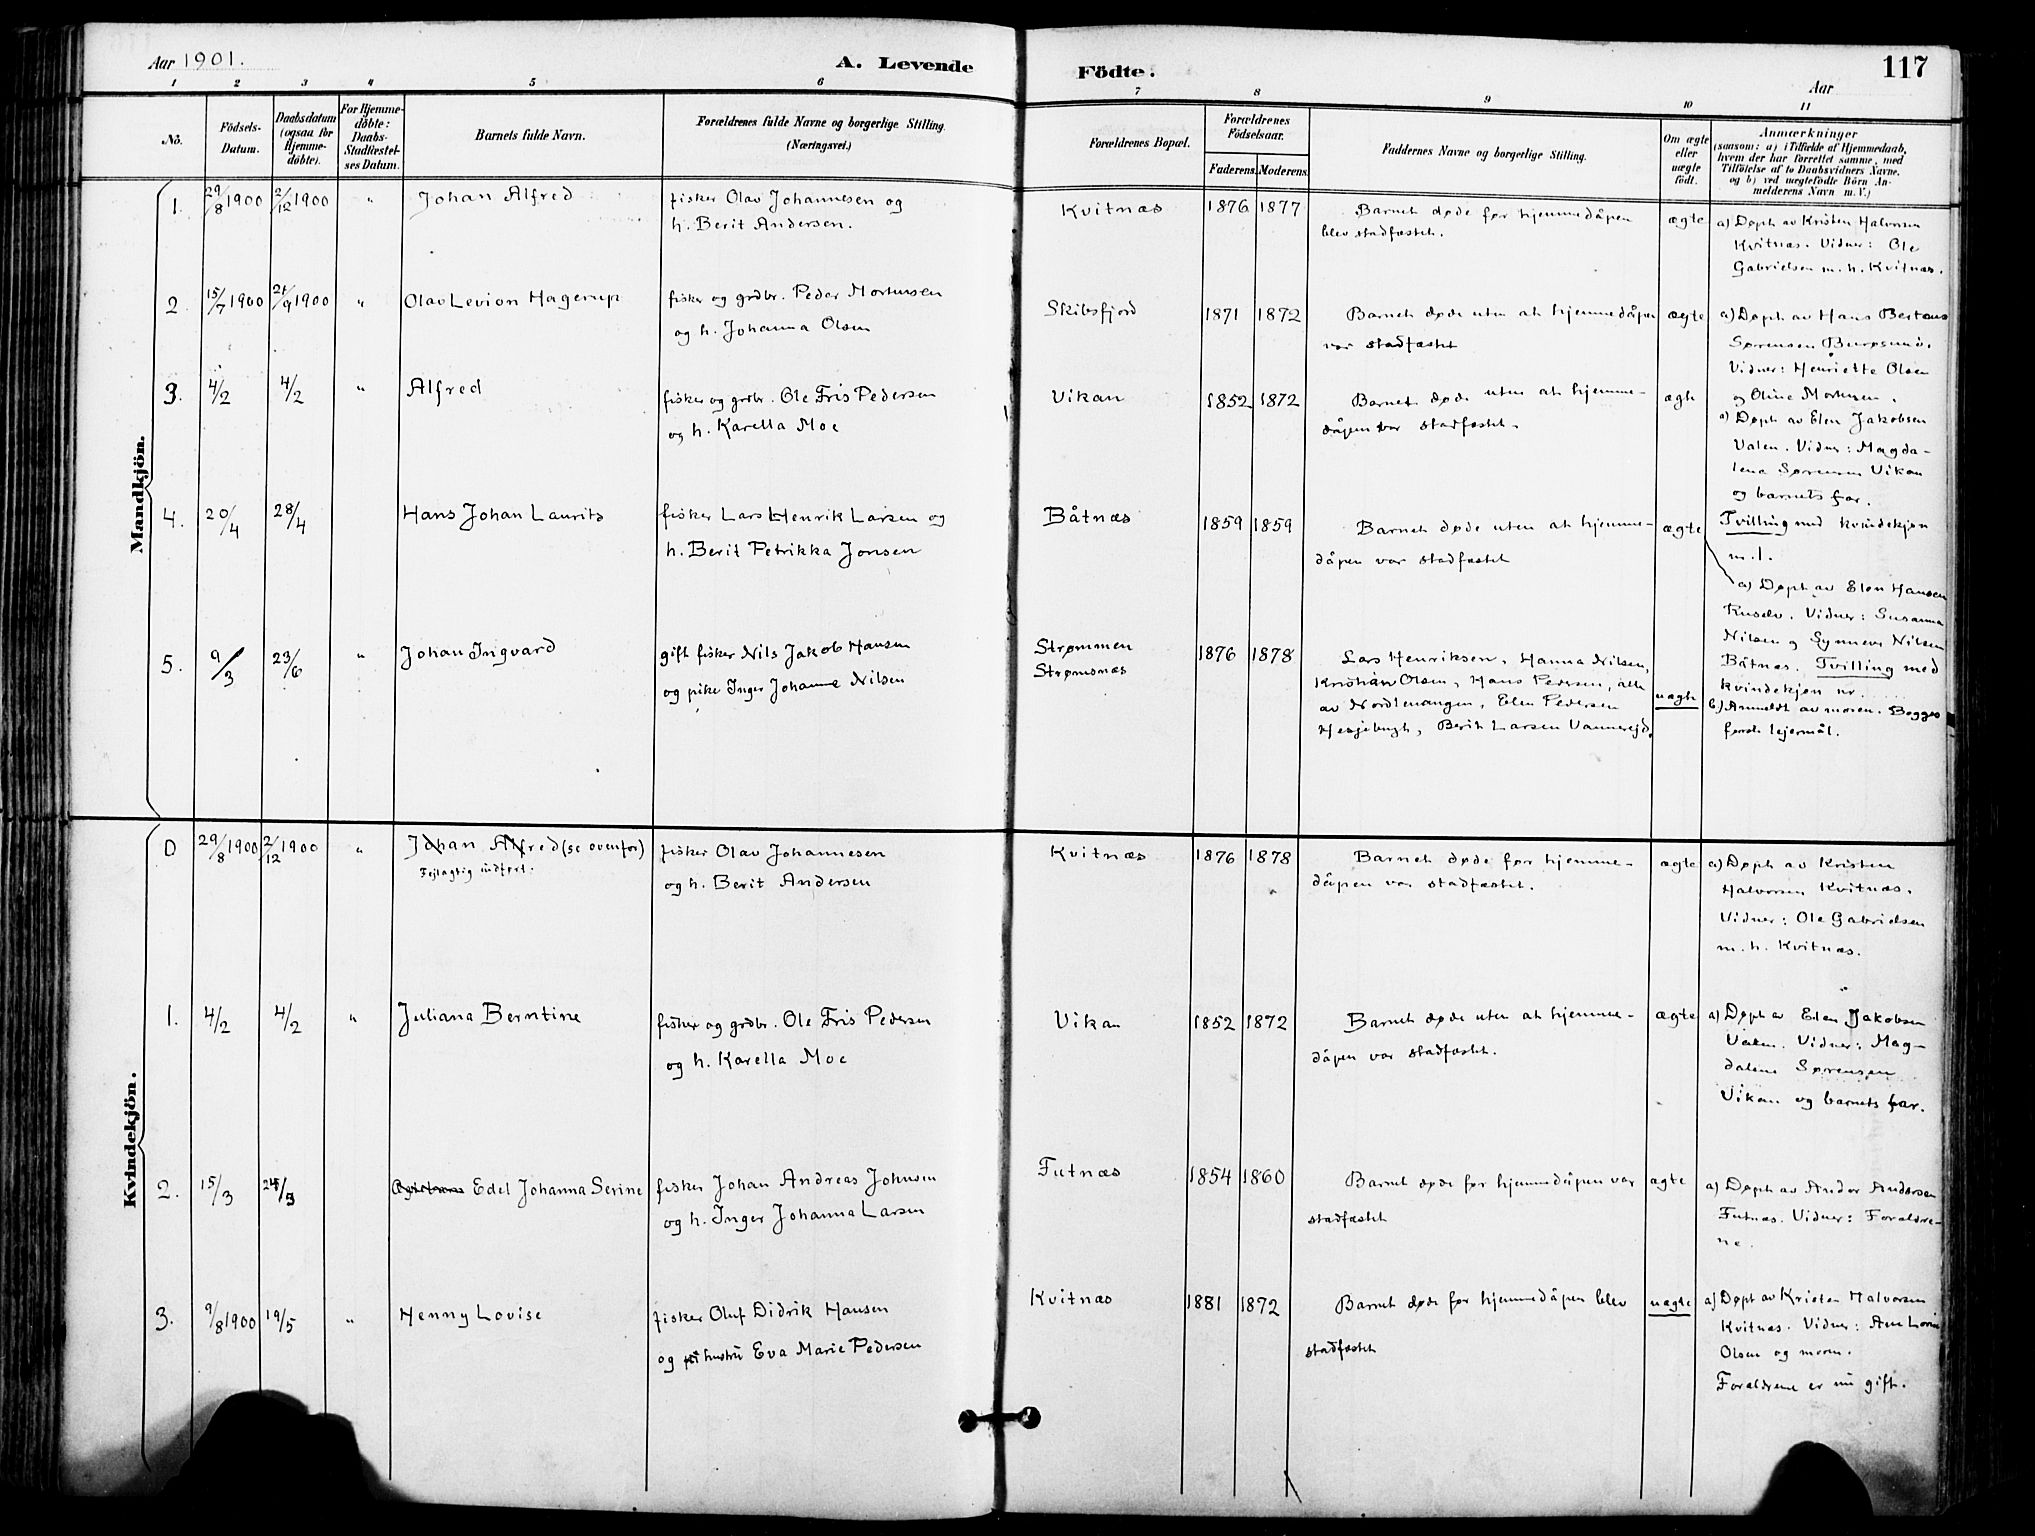 Aar 1901.
A. Levende Födte.
Aar
117
1 2 3 4 5 6 7 8 9 10 11
No.
Födsels-
Datum.
Daabsdatum
(ogsaa for
Hjemme-
döbte).
For Hjemme-
döbte:
Daabs-
Stadfæstel-
ses Datum.
Barnets fulde Navn.
Forældrenes fulde Navne og borgerlige Stilling.
(Næringsvei.)
Forældrenes Bopæl.
Forældrenes
Födselsaar.
Faderens. Moderens.
Faddernes Navne og borgerlige Stilling.
Om ægte
eller
uægte
födt.
Anmærkninger
(saasom: a) i Tilfælde af Hjemmedaab,
hvem der har forrettet samme, med
Tilföielse af to Daabsvidners Navne,
og b) ved uægtefödte Börn An-
melderens Navn m. V.)
Mandkjön.
1. 29/8 1900 2/12 1900 " Johan Alfred
fisker Olav Johannesen og
h. Berit Andersen.
Kvitnæs 1876 1877
Barnet døde før hjemmedåpen
blev stadfæstet.
ægte
a) Døpt av Kristen Halvorsen
Kvitnæs. Vidner: Ole
Gabrielsen m. h. Kvitnæs.
2. 15/7 1900 21/9 1900 " Olav Levion Hagerup
fisker og grdbr. Peder Mortensen
og h. Johanna Olsen
Skibsfjord 1871 1872
Barnet døde uten at hjemmedåpen
var stadfæstet
ægte
a) Døpt av Hans Berteus
Sørensen
Vidner: Henriette Olsen
og Oline Mortensen.
3. 4/2 4/2 " Alfred
fisker og grdbr. Ole Fris Pedersen
og h. Karella Moe
Vikan 1852 1872
Barnet døde uten at hjemme-
dåpen var stadfæstet.
ægte
a) Døpt av Elen Jakobsen
Valen. Vidner: Magda-
lena Sørensen Vikan
og barnets far.
4. 20/4 28/4 Hans Johan Laurits
fisker Lars Henrik Larsen og
h. Berit Petrikka Jonsen
Båtnæs 1859 1859
Barnet døde uten at hjemme-
dåpen var stadfæstet
ægte
Tvilling med kvindekjøn
m. 1.
a) Døpt av Elen Hansen
Vidner: Susanna
Nilsen og Synneve Nilsen
Båtnæs. Tvilling med
kvindekjøn nr.
5. 9/3 23/6 " Johan Ingvard
gift fisker Nils Jakob Hansen
og pike Inger Johanne Nilsen
Strømmen
Strømsnæs
1876 1878
Lars Henriksen, Hanna Nilsen,
Kristian Olsen, Hans Pedersen, alle
av Nordlenangen, Elen Pedersen
Berit Larsen Vannereid.
uægte
b) Anmeldt av moren. Begges
første lejermål.
Kvindekjön.
0 29/8 1900 2/12 1900 " Johan Alfred (se ovenfor)
Fejlagtig indført.
fisker Olav Johannesen
og h. Berit Andersen
Kvitnæs 1876 1878
Barnet døde før hjemme-
dåpen var stadfæstet.
ægte
a) Døpt av Kristen
Halvorsen Kvitnæs.
Vidner: Ole Gabrielsen
m. h. Kvitnæs.
1. 4/2 4/2 " Juliana Berntine
fisker og grdbr. Ole Fris Pedersen
og h. Karella Moe
Vikan 1852 1872
Barnet døde uten at hjemme-
dåpen var stadfæstet.
ægte
a) Døpt av Elen Jakobsen
Valen. Vidner: Mag-
dalene Sørensen
Vikan og barnets far.
2. 15/3 Edel Johanna Serine
fisker Johan Andreas Johnsen
og h. Inger Johanna Larsen
Futnæs 1854 1860
Barnet døde før hjemmedåpen var
stadfæstet
ægte
a) Døpt av Andor Andersen
Futnæs. Vidner: Forældre-
ne.
3. 9/8 1900 19/5 " Henny Lovise
fisker Oluf Didrik Hansen
og hustru Eva Marie Pedersen
Kvitnæs 1881 1872
Barnet døde før hjemmedåpen blev
stadfæstet
uægte
a) Døpt av Kristen Halvorsen
Kvitnæs. Vidner: Ane Lovise
Olsen og moren.
Forældrene er nu gift.